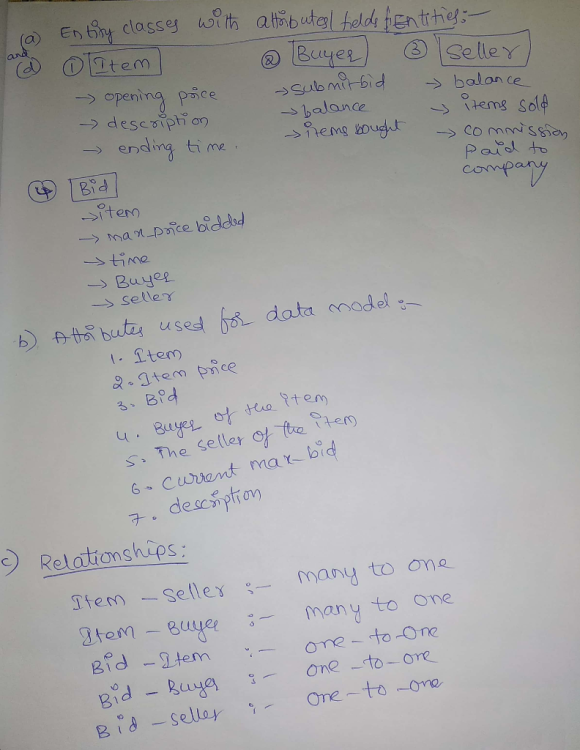 (a) Entity classes with attributes/fields/Entities:-
and
(d) ① Item ② Buyer ③ Seller
→ opening price → submit bid → balance
→ description → balance → items sold
→ ending time. → items bought → commission
paid to
company
④ Bid
→ item
→ max_price bidded
→ time
→ Buyer
→ seller
b) Attributes used for data model:-
1. Item
2. Item price
3. Bid
4. Buyer of the item
5. The seller of the item
6. Current max_bid
7. description
c) Relationships:
Item - Seller :- many to one
Item - Buyer :- many to one
Bid - Item :- one-to-one
Bid - Buyer :- one-to-one
Bid - seller :- one-to-one